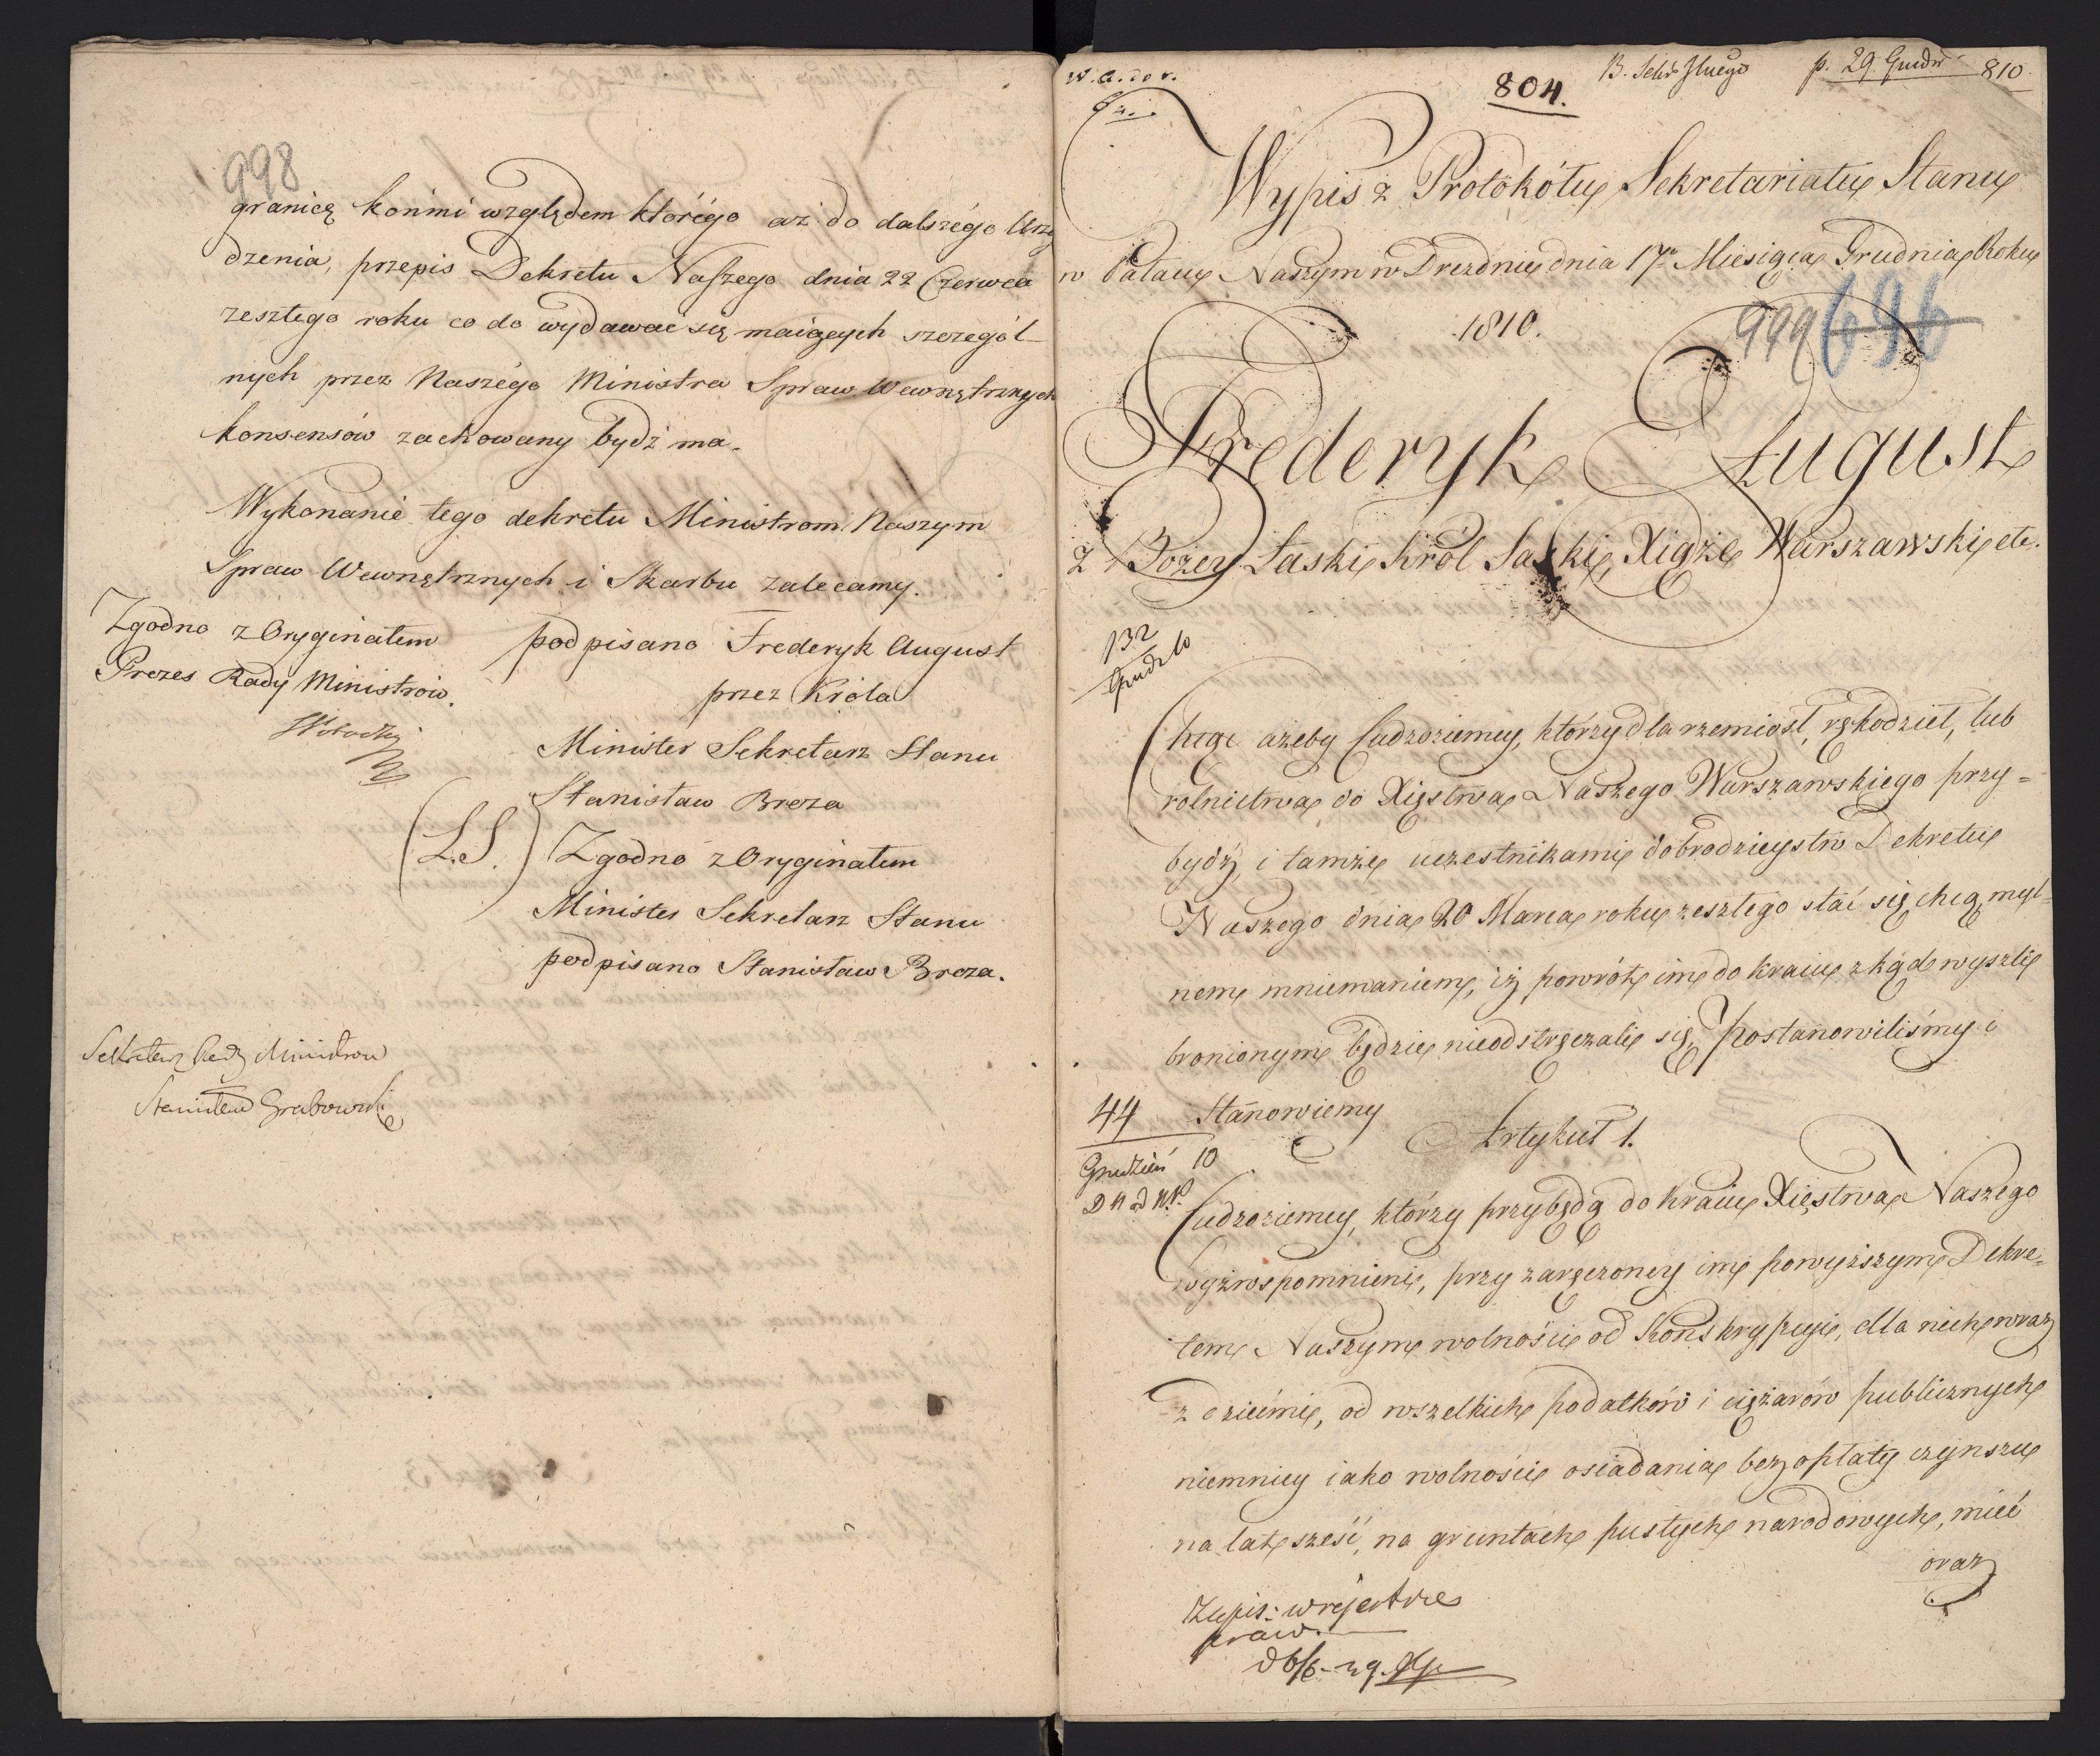 998
granicę końmi względem którégo aż do dalszégo Urzą
dzenia, przepis Dekretu Naszego dnia 22 Czerwca
zeszłego roku co do wydawać się maiących szczegól-
nych przez Naszégo Ministra Spraw Wewnętrznych
konsensów zachowany bydź ma.
Wykonanie tego dekretu Ministrom Naszym
Spraw Wewnętrznych i Skarbu zalecamy.
Zgodno z Oryginałem
Prezes Rady Ministrów.
podpisano Frederyk August
przez Króla
Minister Sekretarz Stanu
Stanisław Breza
(L.S.) Zgodno z Oryginałem
Minister Sekretarz Stanu
podpisano Stanisław Breza.
Sekretarz Rady Ministrow
Stanisław Grabowski
804.
p. 29 Grudn 810.
Wypis z Protokółu Sekretariatu Stanu
w Pałacu Naszym w Dreznie dnia 17go Miesiąca Grudnia Roku
1810.
999 696
Frederyk August
z Bożey Łaski Król Saski, Xiąże Warszawski etc.
132
Grudz 10
Chcąc ażeby Cudzoziemcy, którzy dla rzemiosł, rękodzieł, lub
rolnictwa do Xięstwa Naszego Warszawskiego przy=
bydź, i tamże uczestnikami dobrodzieystw Dekretu
Naszego dnia 20 Marca roku zeszłego stać się chcą, myl=
nem mniemaniem, iż powrót im do kraiu zkąd wyszli
bronionym będzie nieodstręczali się, Postanowiliśmy i
Stanowiemy
44
Grudzień 10
Artykuł 1.
Cudzoziemcy, którzy przybędą do kraiu Xięstwa Naszego
wyżwspomnieni, przy zaręczoney im powyższym Dekre=
tem Naszym wolności od Konskrypcyi, dla nich wraz
z dziećmi, od wszelkich podatków i ciężarów publicznych
niemniey iako wolności osiadania bez opłaty czynszu
na lat sześć, na gruntach pustych narodowych, mieć
oraz
Zapis: w rejestrze
praw.